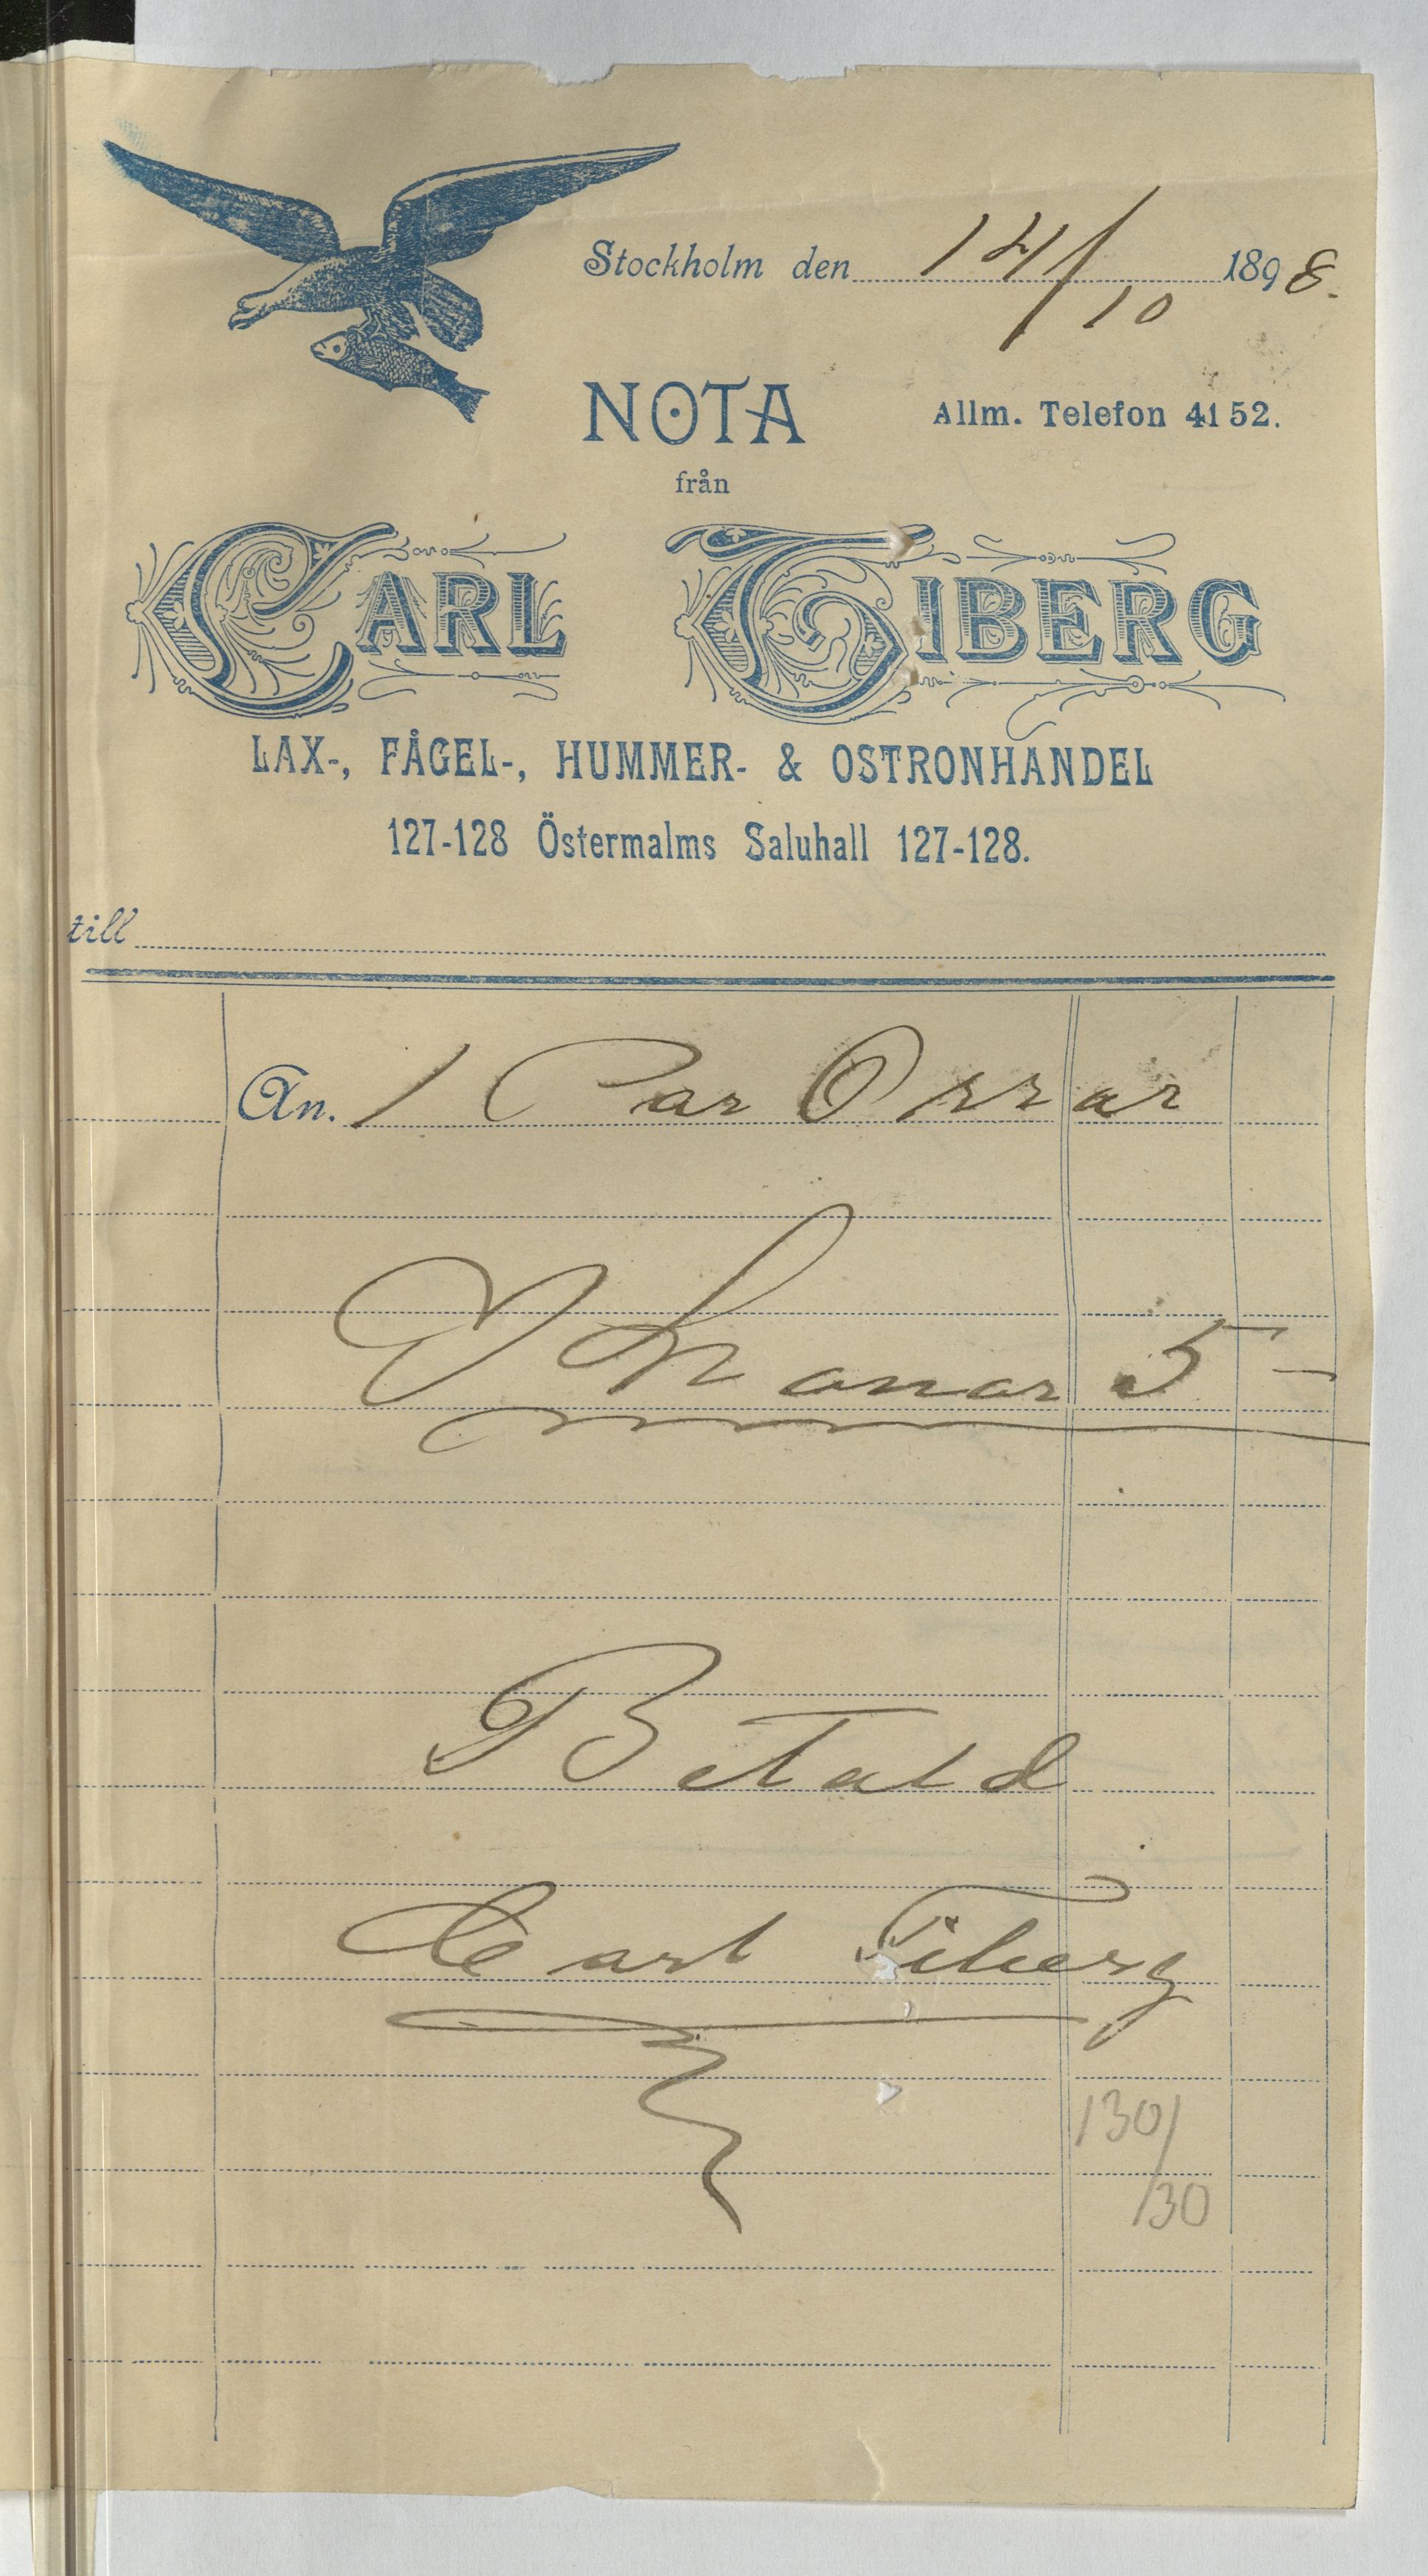 Stockholm den 14/10 1898.
NOTA
Allm. Telefon 41 52.
från
CARL TIBERG
LAX-, FÅGEL-, HUMMER- & OSTRONHANDEL
127-128 Östermalms Saluhall 127-128.
till
An. 1 Par Orrar
Kronor 5 –
Betald
Carl Tiberg
130/
/30